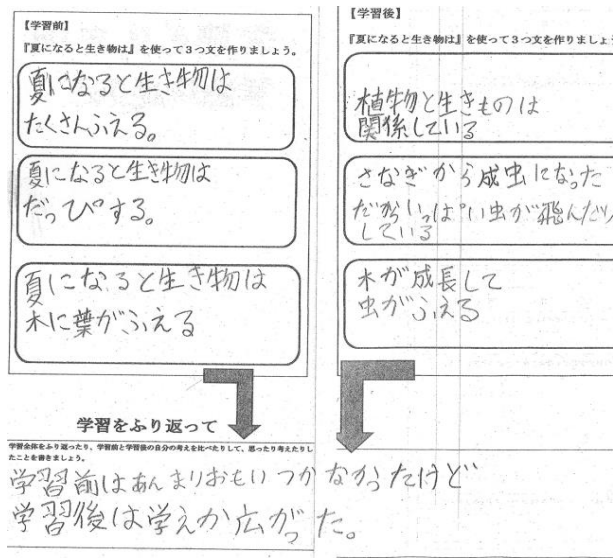 【学習前】
『夏になると生き物は』を使って3つ文を作りましょう。
夏になると生き物は
たくさんふえる。
夏になると生き物は
だっぴする。
夏になると生き物は
木に葉がふえる
【学習後】
『夏になると生き物は』を使って3つ文を作りましょう
植物と生きものは
関係している
さなぎから成虫になった
だからいっぱい虫が飛んだり
している
木が成長して
虫がふえる
学習をふり返って
学習全体をふり返ったり、学習前と学習後の自分の考えを比べたりして、思ったり考えたりし
たことを書きましょう。
学習前はあんまりおもいつかなかったけど
学習後は学えが広がった。